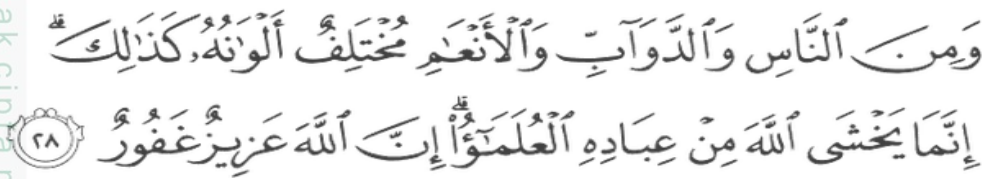 وَمِنَ ٱلنَّاسِ وَٱلدَّوَآبِّ وَٱلْأَنْعَـٰمِ مُخْتَلِفٌ أَلْوَٰنُهُۥ كَذَٰلِكَ ۗ
إِنَّمَا يَخْشَى ٱللَّهَ مِنْ عِبَادِهِ ٱلْعُلَمَـٰٓؤُا۟ ۗ إِنَّ ٱللَّهَ عَزِيزٌ غَفُورٌ ٢٨